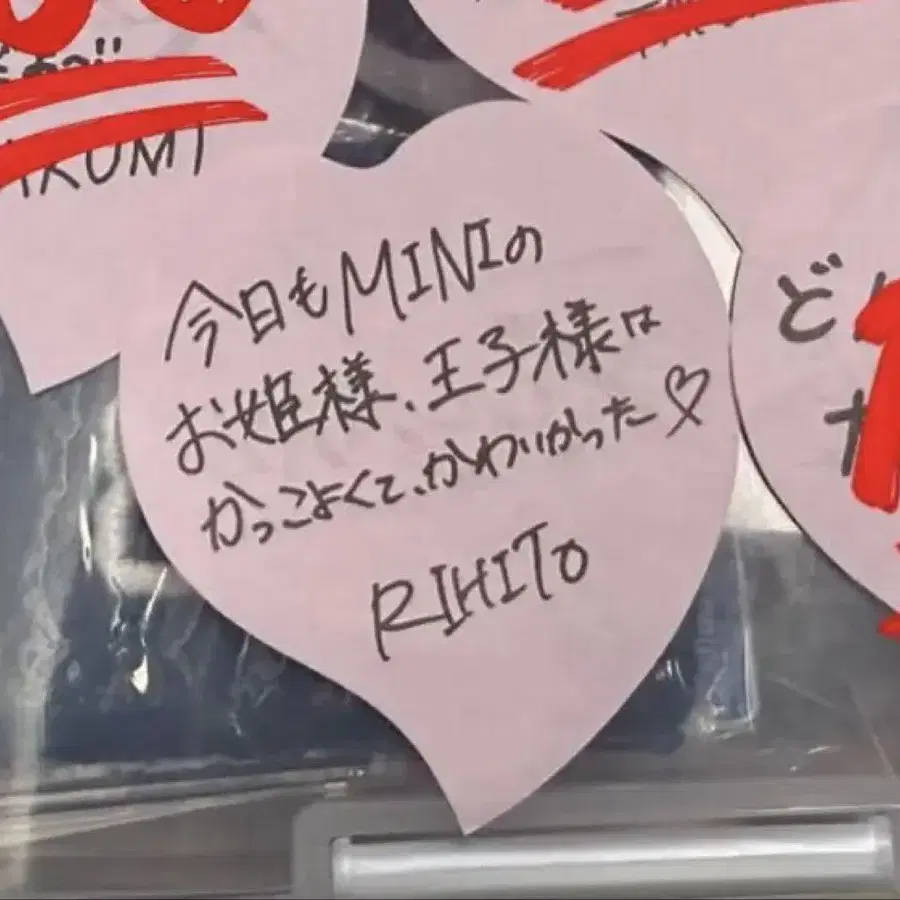 今日もMINIの
お姫様、王子様は
かっこよくて、かわいかった♡
RIHITO